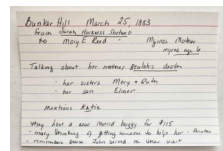 Bunker Hill March 25, 1883
from Sarah Harkness Sturtuck
to Mary E Reed - Myrnes Mother
myrne age 6
Talking about her mother
- her sisters Mary + Ruth
- her son Elmer
Mentions Katie
They have a new horse buggy for $115
- mary thinking of getting someone to help her -
- remembers when John served on their visit